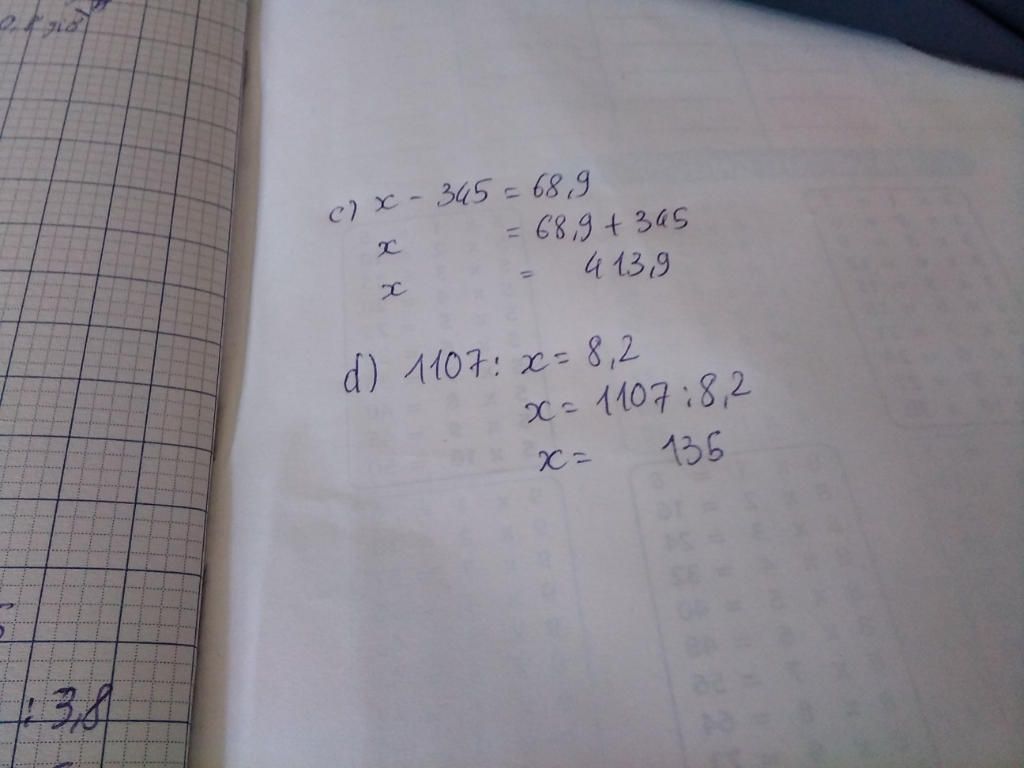 c) x - 345 = 68,9
x = 68,9 + 345
x = 413,9
d) 1107 : x = 8,2
x = 1107 : 8,2
x = 135
: 3,8